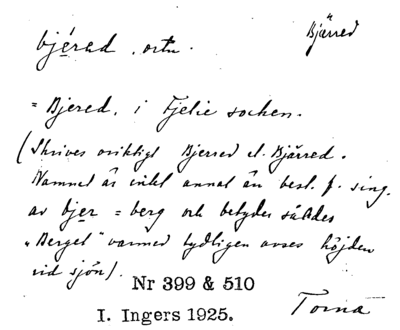 Bjärred
bjérad, ortn.
= Bjered, i Fjelie socken.
(Skrives oriktigt Bjerred el. Bjärred.
Namnet är intet annat än best. f. sing.
av bjer = berg och betyder således
"Berget" varmed tydligen avses höjden
vid sjön).
Nr 399 & 510
I. Ingers 1925. Torna